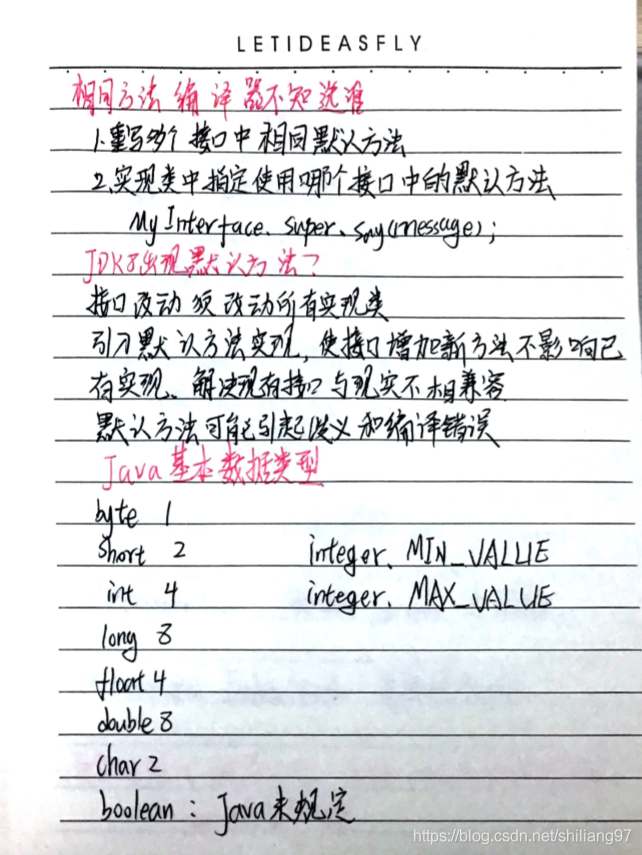 LETIDEASFLY
相同方法 编译器不知选谁
1.重写多个接口中相同默认方法
2.实现类中指定使用哪个接口中的默认方法
My Interface. super. say(message);
JDK8出现默认方法?
接口改动须改动所有实现类
引入默认方法实现,使接口增加新方法不影响已
有实现、解决现有接口与现实不相兼容
默认方法可能引起歧义和编译错误
Java基本数据类型
byte 1
short 2 integer. MIN_VALUE
int 4 integer. MAX_VALUE
long 8
float 4
double 8
char 2
boolean : Java未规定
https://blog.csdn.net/shiliang97